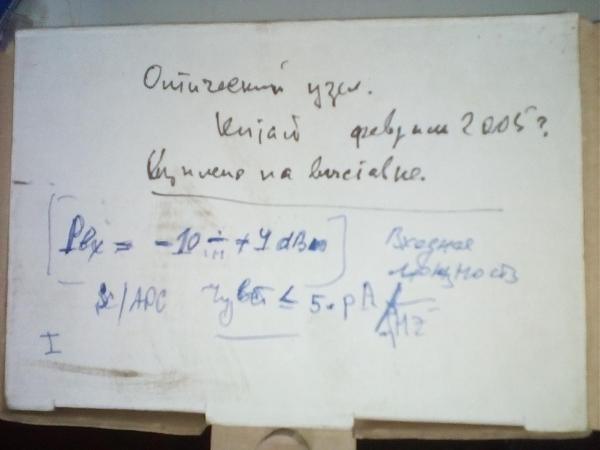 Оптический узел.
Китай февраль 2005?
Куплено на выставке.
Рвх = -10 ÷ +4 dBm Входная
мощность
SC/APC Чувст ≤ 5 pA/√Hz
I